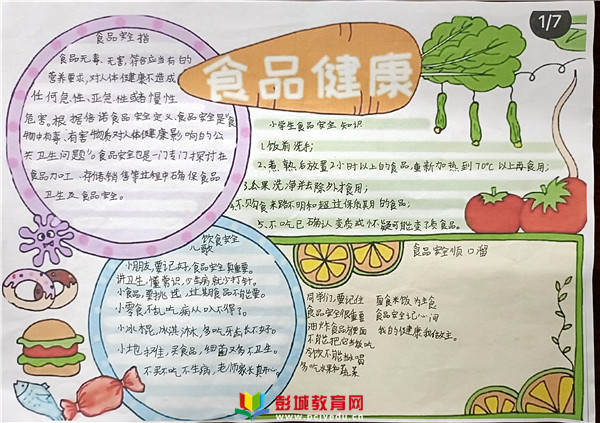 1/7
食品健康
食品安全指
食品无毒、无害,符合应当有的
营养要求,对人体健康不造成
任何急性、亚急性或者慢性
危害。根据倍诺食品安全定义,食品安全是"食
物中有毒、有害物质对人体健康影响的公
共卫生问题"。食品安全也是一门专门探讨在
食品加工、存储、销售等过程中确保食品
卫生及食品安全。
小学生食品安全知识
1.饭前洗手;
2.煮熟后放置2小时以上的食品,重新加热到70℃以上再食用;
3.瓜果洗净并去除外才食用;
4.不购食来路不明和超过保质期的食品;
5.不吃已确认变质或怀疑可能变了质食品。
饮食安全
儿歌
小朋友,要记好,食品安全真重要。
讲卫生,懂常识,少生病就少打针。
小食品,要挑选,过期食品不能要。
小零食不乱吃,病从口入不得了。
小冰棍,冰淇淋,多吃牙长不好。
小地摊,买食品,细菌又多不卫生。
不买不吃不生病,老师家长真开心。
食品安全顺口溜
同学们,要记住
食品安全很重要
油炸食品方便面
不能把它当饭吃
冷饮不能当水喝
多吃水果和蔬菜
面食米饭为主食
食品安全记心间
我的健康我做主。
彭城教育网
www.pcjyedu.cn